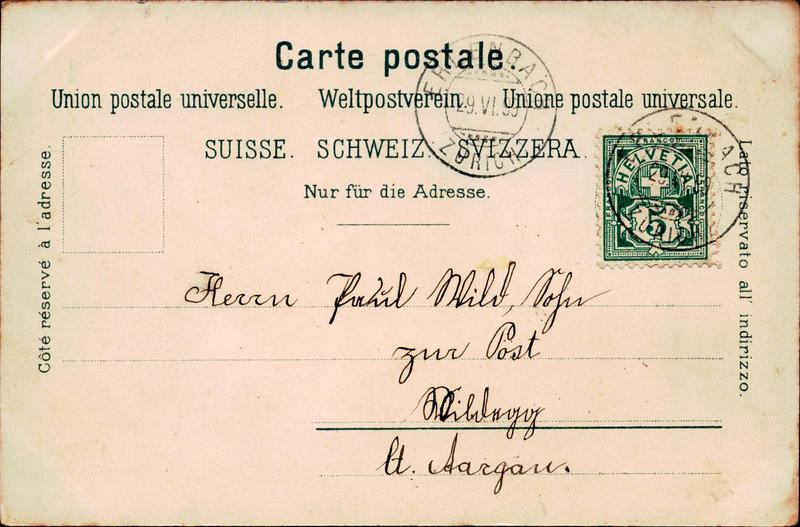 Carte postale.
Union postale universelle. Weltpostverein. Unione postale universale.
SUISSE. SCHWEIZ. SVIZZERA.
Nur für die Adresse.
Côté réservé à l'adresse.
Lato riservato all' indirizzo.
ERLENBACH
29.VI.
ZÜRICH
FRANCO
HELVETIA
5
Herrn Paul Wild, Sohn
zur Post
Wildegg
Ct. Aargau.